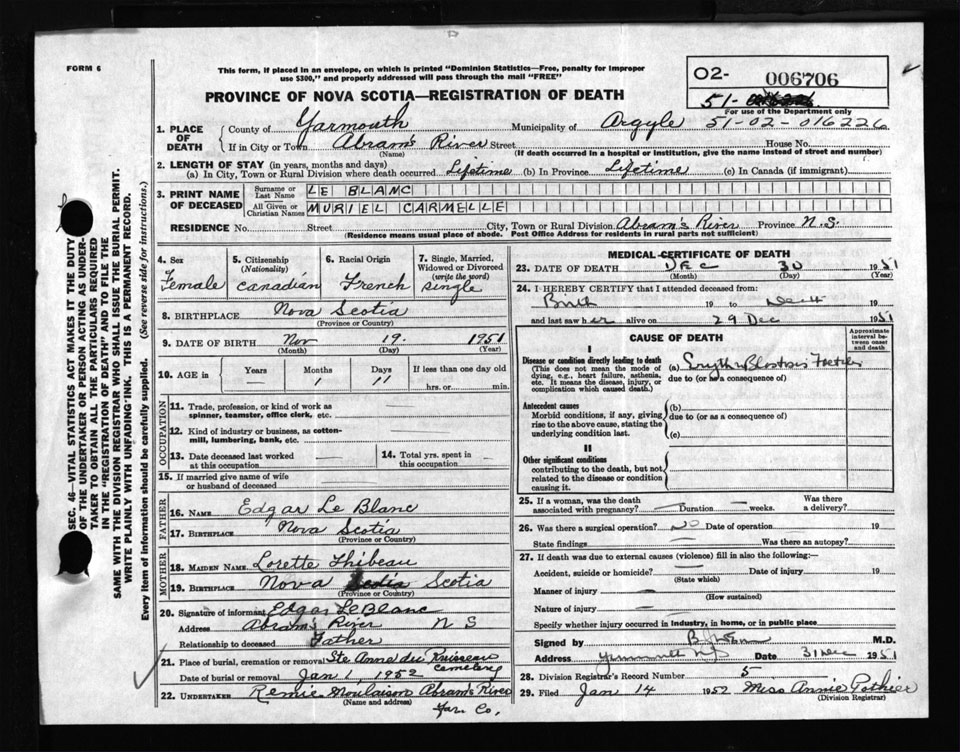 FORM 6
This form, if placed in an envelope, on which is printed "Dominion Statistics—Free, penalty for improper
use $300," and properly addressed will pass through the mail "FREE"
O2- 006706
51-
For use of the Department only
51-02-016226
PROVINCE OF NOVA SCOTIA—REGISTRATION OF DEATH
1. PLACE OF DEATH
County of Yarmouth Municipality of Argyle
If in City or Town Abram's River Street House No.
(Name) (If death occurred in a hospital or institution, give the name instead of street and number)
2. LENGTH OF STAY (in years, months and days)
(a) In City, Town or Rural Division where death occurred Lifetime (b) In Province Lifetime (c) In Canada (if immigrant)
3. PRINT NAME OF DECEASED
Surname or Last Name LE BLANC
All Given or Christian Names MURIEL CARMELLE
RESIDENCE No. Street City, Town or Rural Division Abram's River Province N.S.
(Residence means usual place of abode. Post Office Address for residents in rural parts not sufficient)
SEC. 46—VITAL STATISTICS ACT MAKES IT THE DUTY
OF THE UNDERTAKER OR PERSON ACTING AS UNDER-
TAKER TO OBTAIN ALL THE PARTICULARS REQUIRED
IN THE "REGISTRATION OF DEATH" AND TO FILE THE
SAME WITH THE DIVISION REGISTRAR WHO SHALL ISSUE THE BURIAL PERMIT.
WRITE PLAINLY WITH UNFADING INK. THIS IS A PERMANENT RECORD.
Every item of information should be carefully supplied. (See reverse side for instructions.)
4. Sex
Female
5. Citizenship
(Nationality)
Canadian
6. Racial Origin
French
7. Single, Married,
Widowed or Divorced
(write the word)
Single
8. BIRTHPLACE Nova Scotia
(Province or Country)
9. DATE OF BIRTH Nov 19 1951
(Month) (Day) (Year)
10. AGE in
Years Months Days If less than one day old
— 1 11 hrs. or min.
OCCUPATION
11. Trade, profession, or kind of work as
spinner, teamster, office clerk, etc.
12. Kind of industry or business, as cotton-
mill, lumbering, bank, etc.
13. Date deceased last worked
at this occupation
14. Total yrs. spent in
this occupation
15. If married give name of wife
or husband of deceased
FATHER
16. NAME Edgar Le Blanc
17. BIRTHPLACE Nova Scotia
(Province or Country)
MOTHER
18. MAIDEN NAME Lorette Thibeau
19. BIRTHPLACE Nova Scotia Scotia
(Province or Country)
20. Signature of informant Edgar LeBlanc
Address Abram's River N S
Relationship to deceased Father
21. Place of burial, cremation or removal Ste Anne du Ruisseau
cemetery
Date of burial or removal Jan 1, 1952
22. UNDERTAKER Remie Moulaison Abram's River
(Name and address)
Yar. Co.
MEDICAL CERTIFICATE OF DEATH
23. DATE OF DEATH DEC 30 1951
(Month) (Day) (Year)
24. I HEREBY CERTIFY that I attended deceased from:
Birth 19 to Death 19
and last saw her alive on 29 Dec 1951
CAUSE OF DEATH
Approximate
interval be-
tween onset
and death
I
Disease or condition directly leading to death
(This does not mean the mode of
dying, e.g., heart failure, asthenia,
etc. It means the disease, injury, or
complication which caused death.)
(a) Erythroblastosis Foetalis
due to (or as a consequence of)
Antecedent causes
Morbid conditions, if any, giving
rise to the above cause, stating the
underlying condition last.
(b)
due to (or as a consequence of)
(c)
II
Other significant conditions
contributing to the death, but not
related to the disease or condition
causing it.
25. If a woman, was the death
associated with pregnancy? Duration weeks. Was there
a delivery?
26. Was there a surgical operation? no Date of operation 19
State findings Was there an autopsy?
27. If death was due to external causes (violence) fill in also the following:
Accident, suicide or homicide? Date of injury 19
(State which)
Manner of injury
(How sustained)
Nature of injury
Specify whether injury occurred in industry, in home, or in public place
Signed by M.D.
Address Date 31 Dec 1951
28. Division Registrar's Record Number 5
29. Filed Jan 14 1952 Miss Annie Pothier
(Division Registrar)